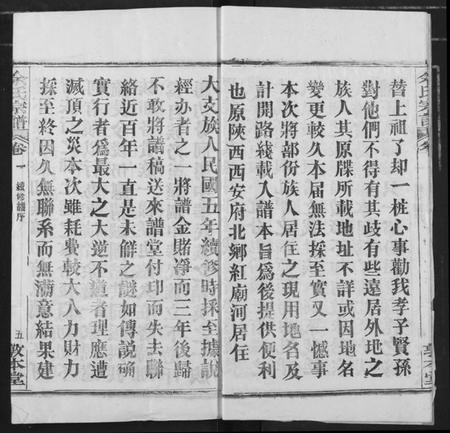 替上祖了却一桩心事勸我孝子賢孫
對他們不得有其歧有些遠居外地之
族人其原牒所載地址不詳或因地名
變更較久本届無法採至實又一憾事
本次將部份族人居住之現用地名及
計開路綫載入譜本旨爲後提供便利
也原陝西西安府北鄉紅廟河居住
大支族人民國五年續修時採至據説
經办者之一將譜金賭凈而三年後歸
不敢將譜稿送來譜堂付印而失去聯
絡近百年一直是未解之謎如傳説确
實行者爲最大之大逆不道者理應遭
滅頂之災本次雖耗費較大人力財力
採至終因久無聯系而無满意結果建
余氏宗譜 卷一 續修譜序 五 敦本堂